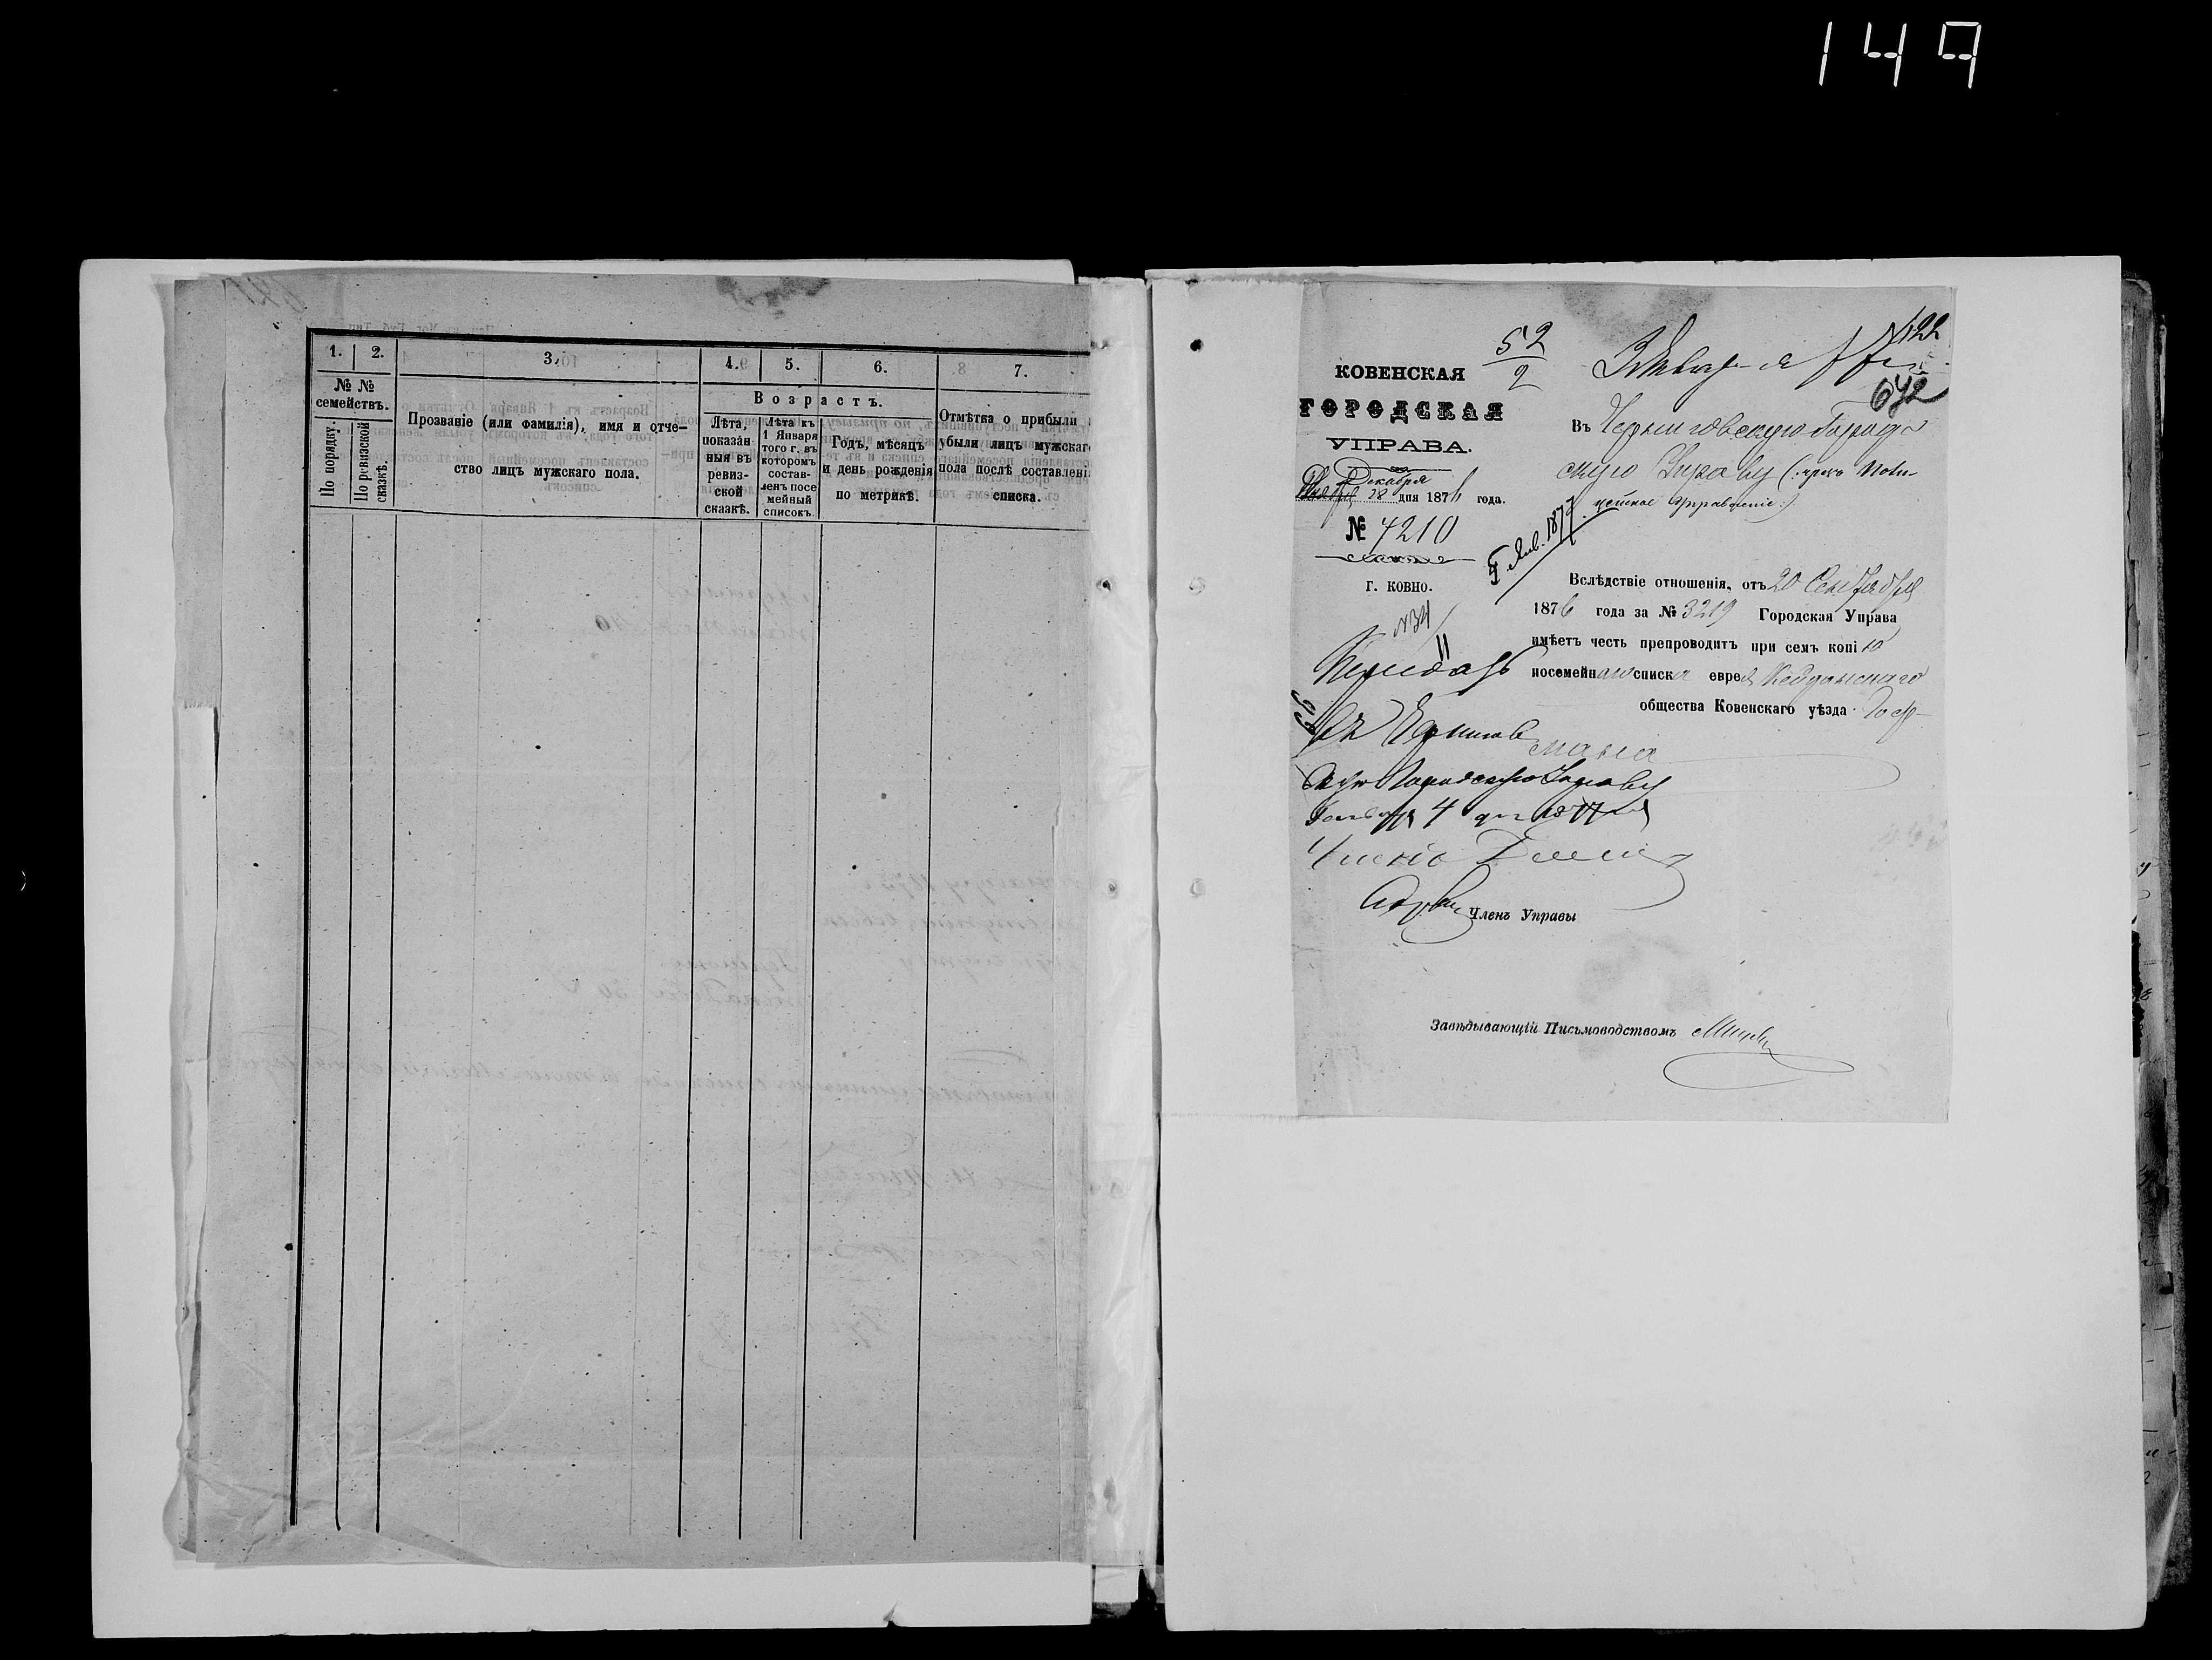 149
1. 2. 3. 4. 5. 6. 7.
№ №
семействъ.
По порядку.
По ревизской
сказкѣ.
Прозваніе (или фамилія), имя и отче-
ство лицъ мужскаго пола.
Возрастъ.
Лѣта,
показан-
ныя въ
ревиз-
ской
сказкѣ.
Лѣта къ
1 Января
того г. въ
которомъ
состав-
ленъ посе
мейный
списокъ.
Годъ, мѣсяцъ
и день рожденія
по метрикѣ.
Отмѣтка о прибыли
убыли лицъ мужскаго
пола послѣ составлені
списка.
52
2
122
642
КОВЕНСКАЯ
ГОРОДСКАЯ
УПРАВА.
Декабря
28 дня 1876 года.
№ 7210
Г. КОВНО.
№34
Въ Черниговскую Городс
кую Управу (чрезъ Поли-
цейское Управленіе.)
4 Янв. 1877
Вслѣдствіе отношенія, отъ 20 Сентября
1876 года за № 3219 Городская Управа
имѣетъ честь препроводить при семъ копію
посемейнаго списка еврея Кейданскаго
общества Ковенскаго уѣзда Гоф-
мана
Передать
въ Чернигов
скую Городскую Управу
Января 4 дня 1877 г.
Членъ Управы
Завѣдывающій Письмоводствомъ